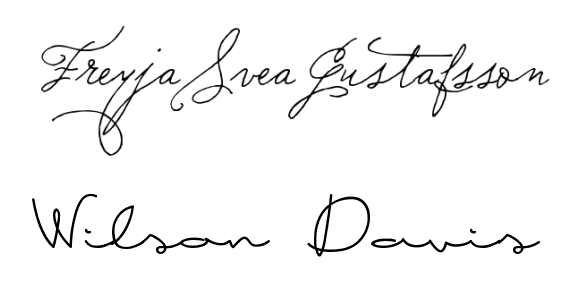 Freyja Svea Gustafsson
Wilson Davis